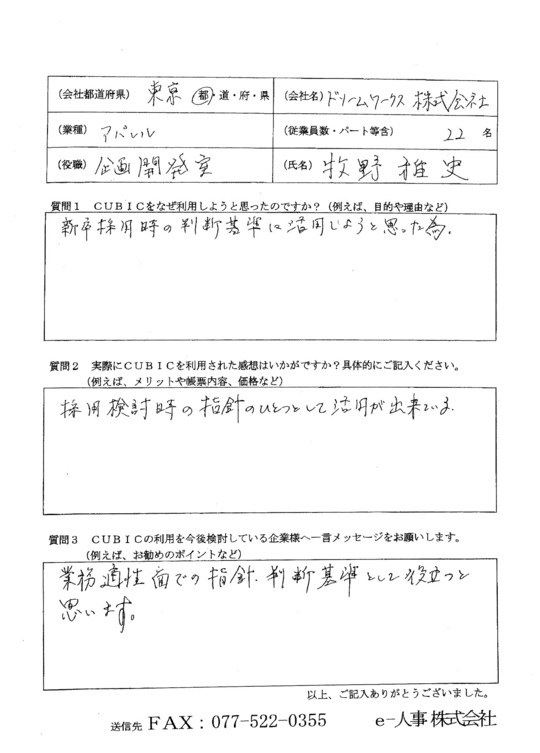 (会社都道府県) 東京 都・道・府・県 (会社名) ドリームワークス 株式会社
(業種) アパレル (従業員数・パート等含) 22 名
(役職) 企画開発室 (氏名) 牧野 雅史
質問1 CUBICをなぜ利用しようと思ったのですか? (例えば、目的や理由など)
新卒採用時の判断基準に活用しようと思った為.
質問2 実際にCUBICを利用された感想はいかがですか?具体的にご記入ください。
(例えば、メリットや帳票内容、価格など)
採用検討時の指針のひとつとして活用が出来ている.
質問3 CUBICの利用を今後検討している企業様へ一言メッセージをお願いします。
(例えば、お勧めのポイントなど)
業務適性面での指針、判断基準として役立つと
思います。
以上、ご記入ありがとうございました。
送信先 FAX:077-522-0355 e-人事株式会社